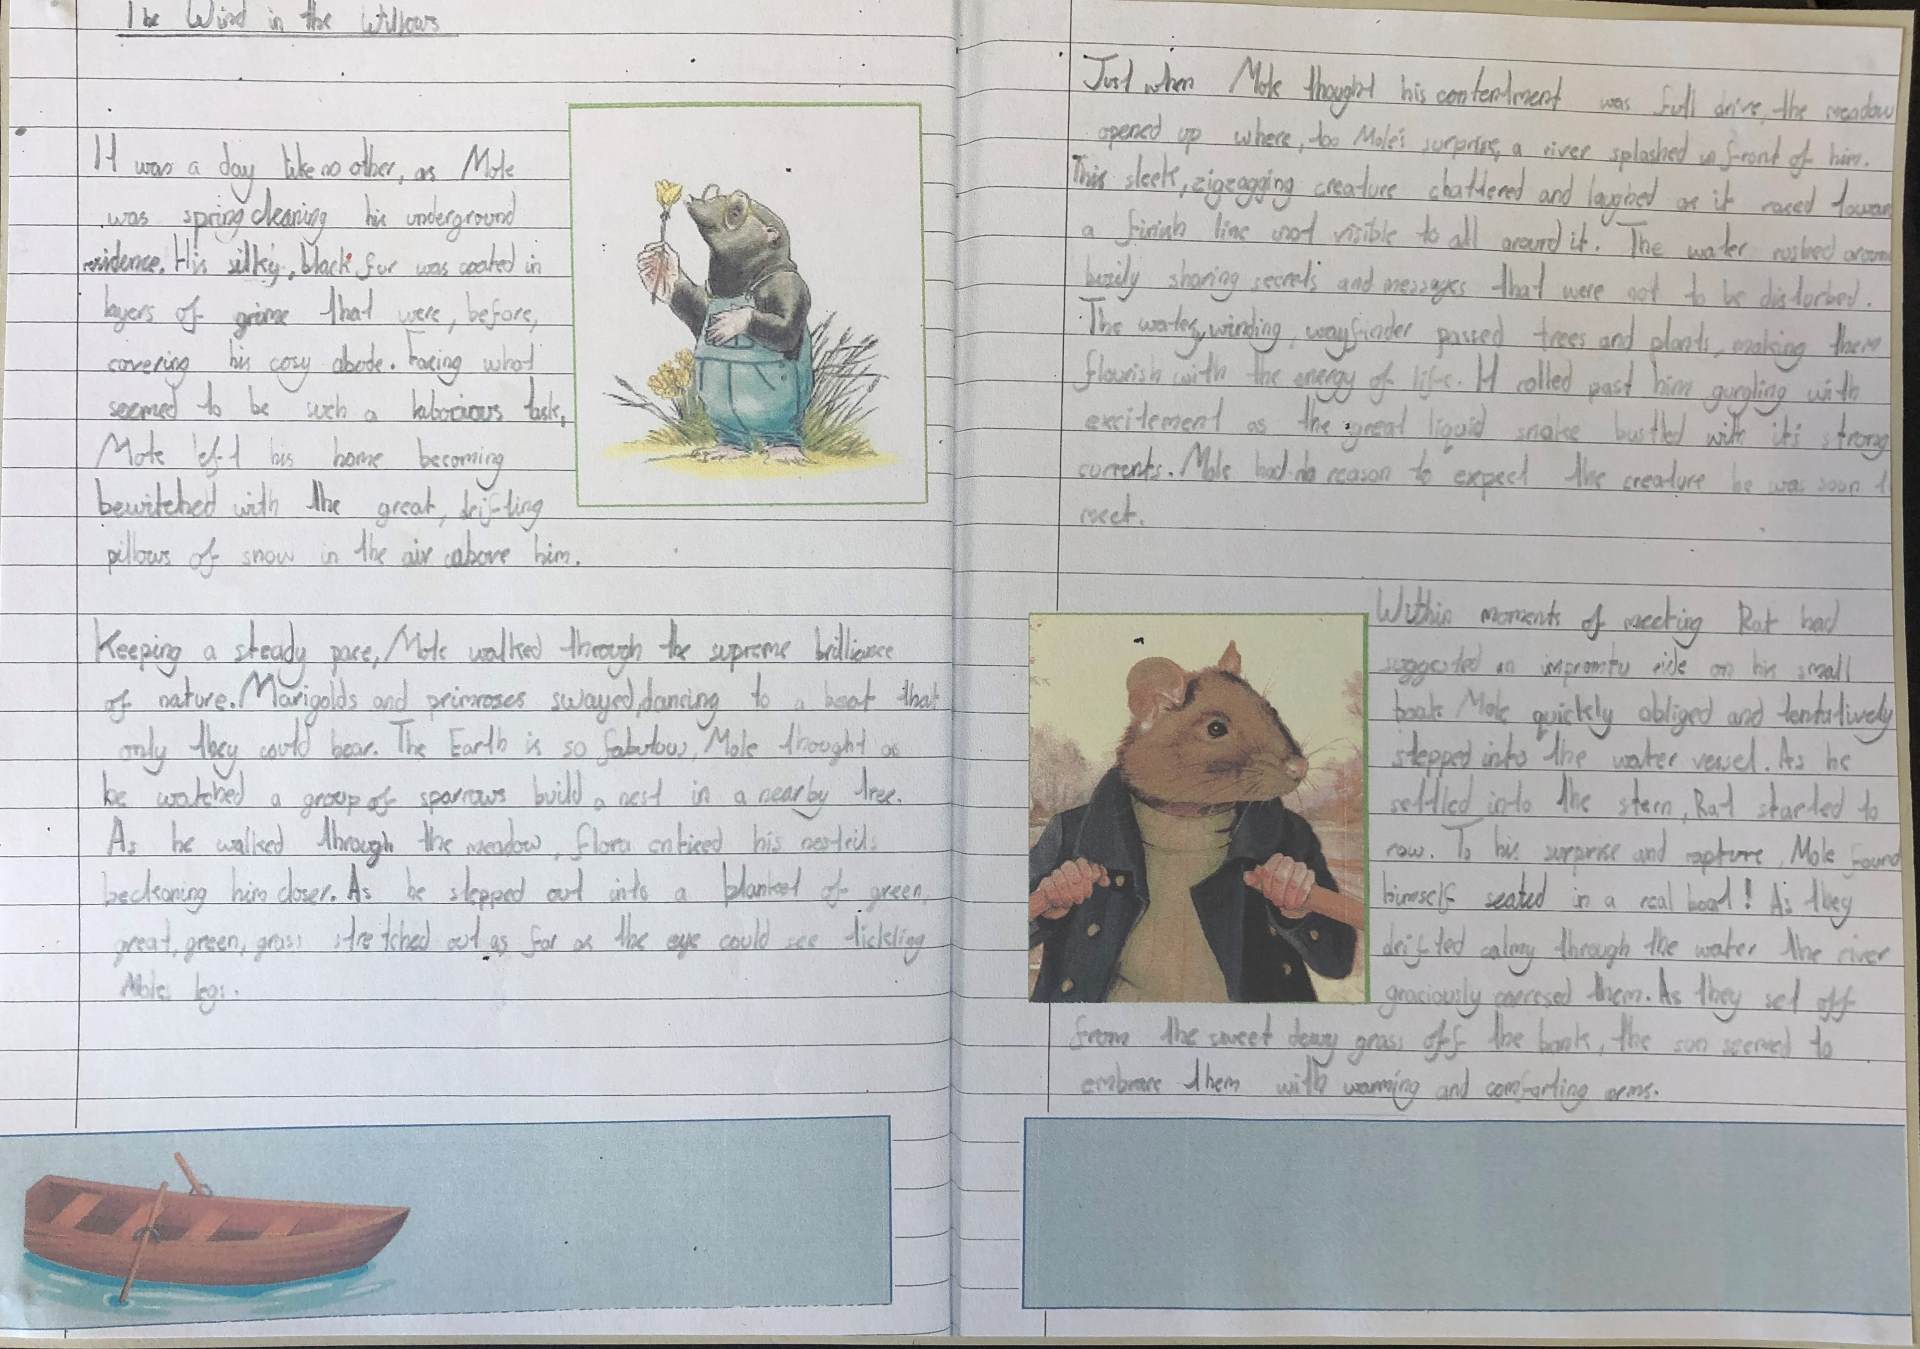 The Wind in the Willows
It was a day like no other, as Mole
was spring cleaning his underground
residence. His silky, black fur was coated in
layers of grime that were, before,
covering his cosy abode. Facing what
seemed to be such a laborious task,
Mole left his home becoming
bewitched with the great, drifting
pillows of snow in the air above him.
Keeping a steady pace, Mole walked through the supreme brilliance
of nature. Marigolds and primroses swayed, dancing to a beat that
only they could hear. The Earth is so fabulous, Mole thought as
he watched a group of sparrows build a nest in a nearby tree.
As he walked through the meadow, flora enticed his nostrils
beckoning him closer. As he stepped out into a blanket of green,
great, green, grass stretched out as far as the eye could see tickling
Moles legs.
Just when Mole thought his contentment was full drive, the meadow
opened up where, too Mole's surprise, a river splashed in front of him.
This sleek, zigzagging creature chattered and laughed as it raced towar
a finish line not visible to all around it. The water rushed aroun
busily sharing secrets and messages that were not to be disturbed.
The water, winding, wayfinder passed trees and plants, making them
flourish with the energy of life. It rolled past him gurgling with
excitement as the great liquid snake bustled with its strong
currents. Mole had no reason to expect the creature he was soon t
meet.
Within moments of meeting Rat had
suggested an impromtu ride on his small
boat. Mole quickly obliged and tentatively
stepped into the water vessel. As he
settled into the stern, Rat started to
row. To his surprise and rapture, Mole found
himself seated in a real boat! As they
drifted calmy through the water the river
graciously caressed them. As they set off
from the sweet dewy grass off the bank, the sun seemed to
embrace them with warming and comforting arms.